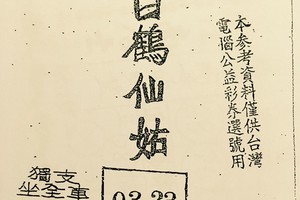 本参考資料僅供台灣
電惱公益彩券選號用
白鶴仙姑
獨支
坐全車